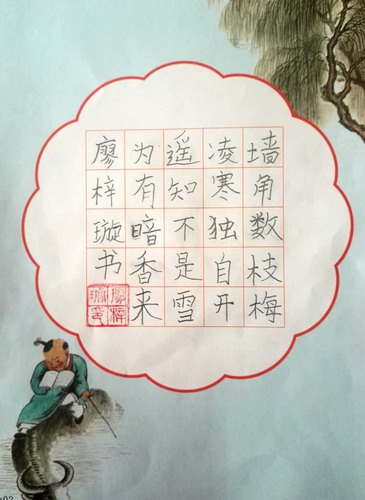 墙角数枝梅
凌寒独自开
遥知不是雪
为有暗香来
廖梓璇书